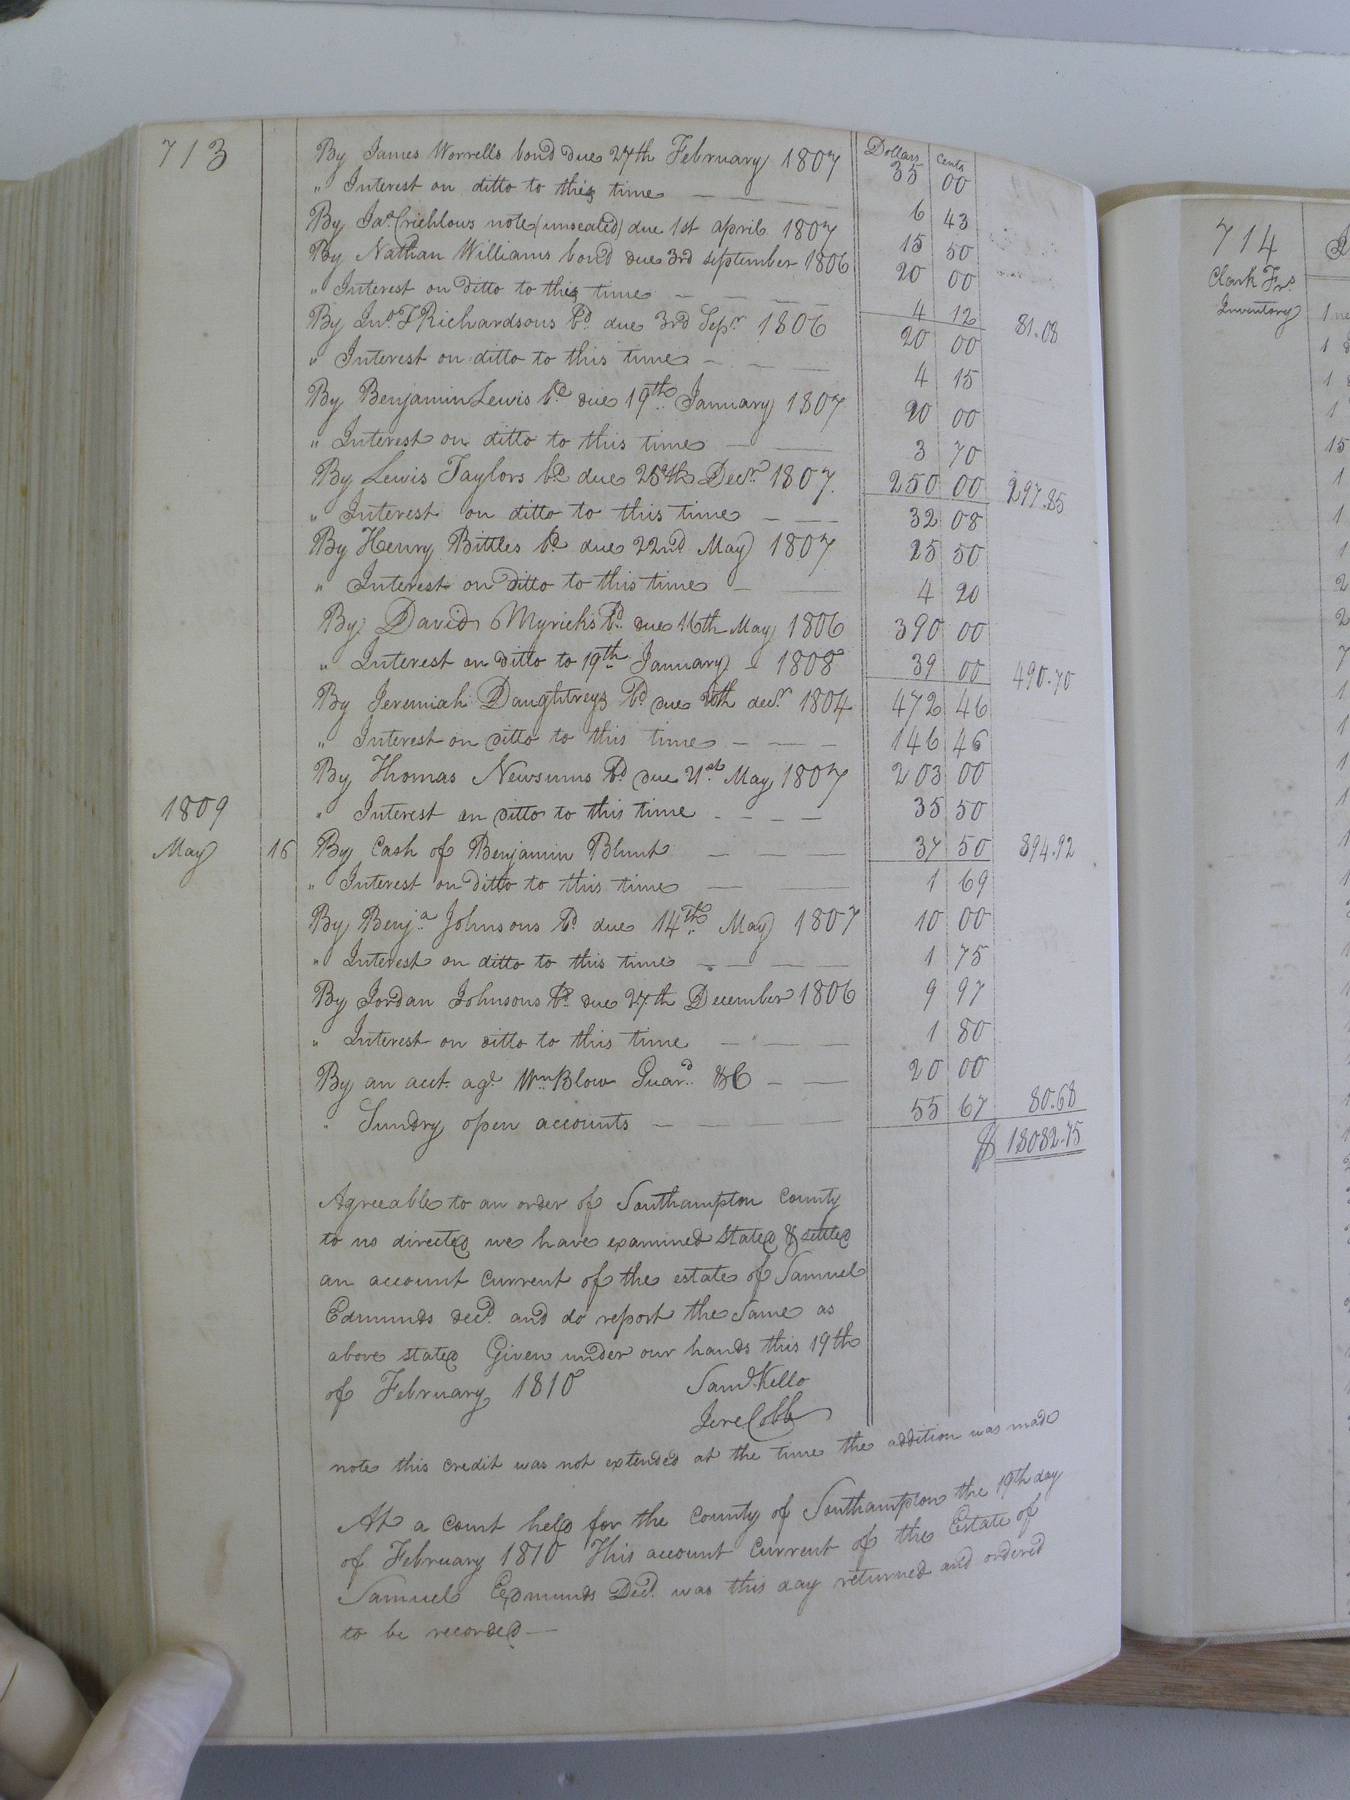 713
Dollars Cents
By James Worrells bond due 27th February 1807 35 00
" Interest on ditto to this time 6 43
By Jas Crichlows note (unsealed) due 1st april 1807 15 50
By Nathan Williams bond due 3rd september 1806 20 00
" Interest on Ditto to this time 4 12 81.08
By Jno T Richardsons bd due 3rd Sepr 1806 20 00
" Interest on ditto to this time 4 15
By Benjamin Lewis bd due 19th January 1807 20 00
" Interest on ditto to this time 3 70
By Lewis Taylors bd due 25th Decr 1807. 250 00 297.85
" Interest on ditto to this time 32 08
By Henry Bittles bd due 22nd May 1807 25 50
" Interest on Ditto to this time 4 20
By David Myricks bd due 16th May 1806 390 00
" Interest on Ditto to 19th January 1808 39 00 490.70
By Jeremiah Daughtreys bd due decr 1804 472 46
" Interest on ditto to this time 146 46
By Thomas Newsums bd due 21st May 1807 203 00
1809 " Interest on ditto to this time 35 50
May 16 By Cash of Benjamin Blunt 37 50 894.92
" Interest on Ditto to this time 1 69
By Benja Johnsons bd due 14th May 1807 10 00
" Interest on ditto to this time 1 75
By Jordan Johnsons bd due 27th December 1806 9 97
" Interest on ditto to this time 1 80
By an acct agt Wm Blow Guard &C 20 00
" Sundry open accounts 55 67 80.68
$ 18082.75
Agreeable to an order of Southampton County
to us directed we have examined stated & settled
an account current of the estate of Samuel
Edmunds decd and do report the same as
above stated Given under our hands this 19th
of February 1810 Saml Kello
Jere Cobb
note this credit was not extended at the time the addition was made
At a court held for the county of Southampton the 19th day
of February 1810 This account current of the Estate of
Samuel Edmunds Decd was this day returned and ordered
to be recorded
714
Clark Frs
Inventory